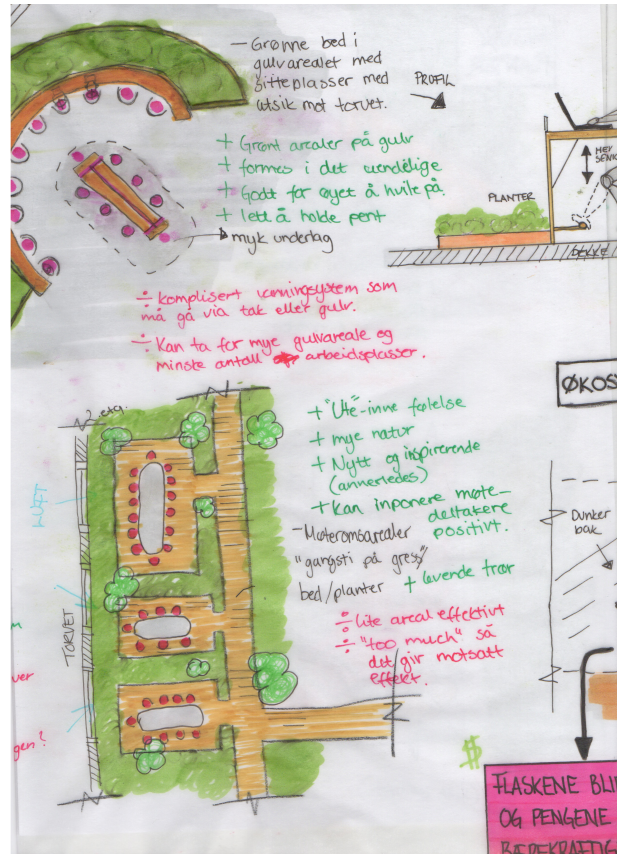 — Grønne bed i
gulvarealet med
sitteplasser med
utsik mot torvet.
PROFIL
+ Grønt arealer på gulv
+ formes i det uendelige
+ Godt for øyet å hvile på.
+ lett å holde pent
myk underlag
PLANTER
HEV
SENK
BEKKE
÷ komplisert vanningsystem som
må gå via tak eller gulv.
÷ Kan ta for mye gulvareale og
minste antall arbeidsplasser.
ØKOS
2. etg.
LUFT
TORVET
+ "Ute"-inne følelse
+ mye natur
+ Nytt og inspirerende
(annerledes)
+ Kan inponere møte-
deltakere
positivt.
— Møteromsarealer
"gangsti på gress"
bed/planter
+ levende trær
÷ lite areal effektivt
÷ "too much" så
det gir motsatt
effekt.
Dunker
bak
m
ver
gen?
$
FLASKENE BLI
OG PENGENE
BÆREKRAFTIG